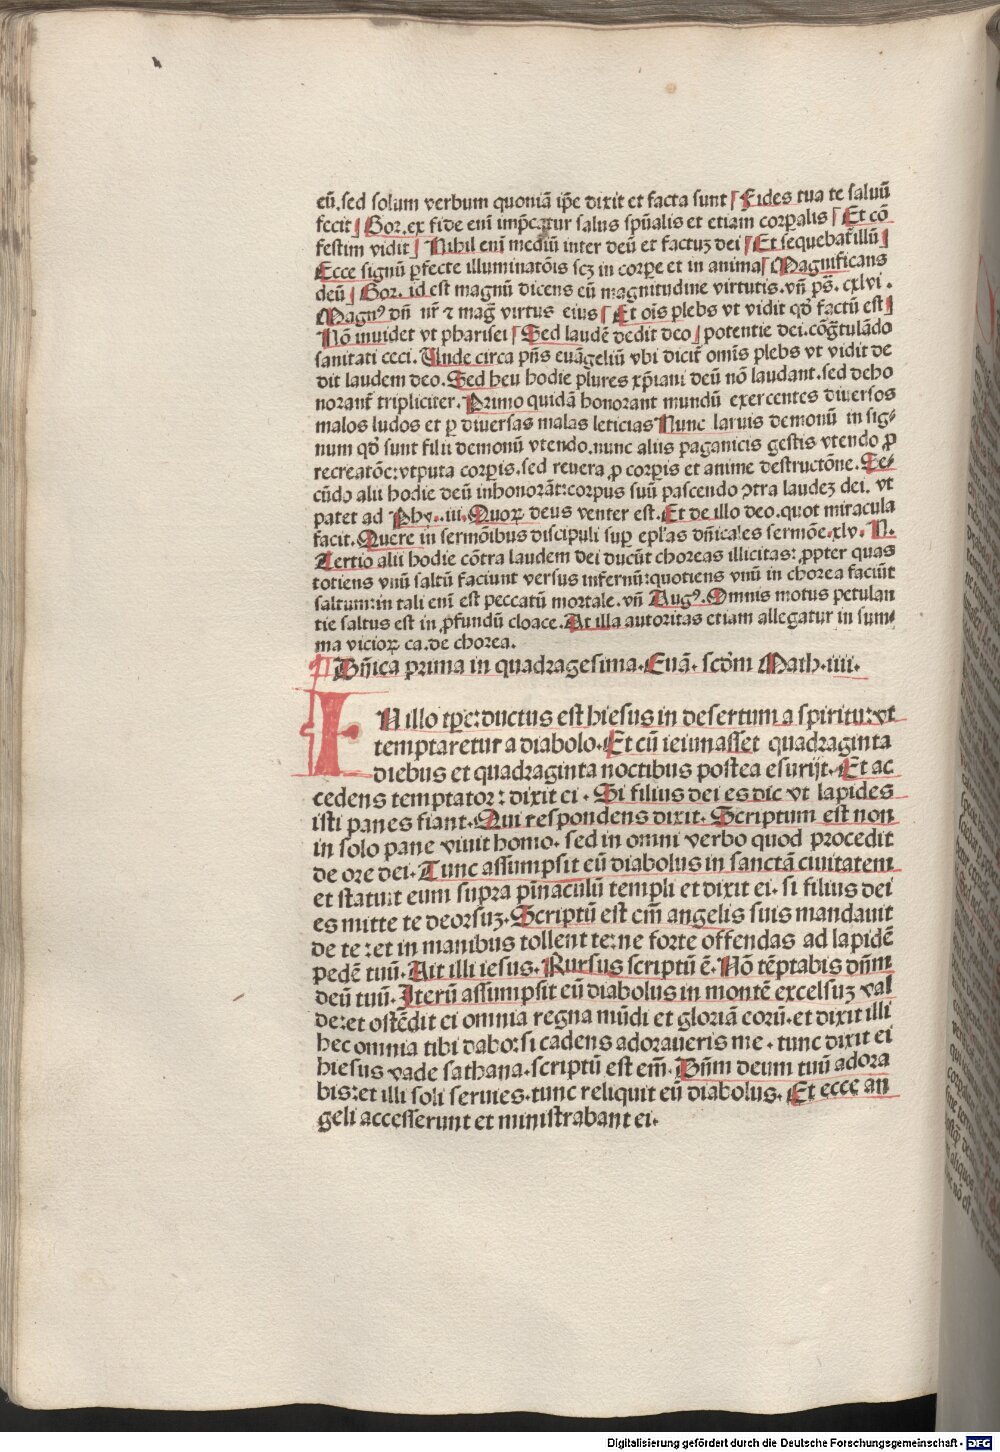 eū. sed solum verbum quoniā ip̄e dixit et facta sunt Fides tua te saluū
fecit Gor. ex fide eni imp̄catur salus sp̄ualis et etiam corp̄alis Et cō
festim vidit Nihil eni mediū inter deū et factuꝫ dei Et sequebat̄ illū
Ecce signū p̄fecte illuminatōis scꝫ in corp̄e et in anima Magnificans
deū Gor. id est magnū dicens eū magnitudine virtutis. vn̄ ps̄. cxlvi.
Magnꝰ dn̄ nr̄ ⁊ mag̅ virtus eius Et ois plebs vt vidit qd̓ factū est
Nō inuidet vt pharisei Sed laudē dedit deo potentie dei. cōg̅tulādo
sanitati ceci. Unde circa pn̄s euāgeliū vbi dicit̄ omīs plebs vt vidit de
dit laudem deo. Sed heu hodie plures xp̄iani deū nō laudant. sed deho
norant̄ tripliciter. Primo quidā honorant mundū exercentes diuersos
malos ludos et ꝑ diuersas malas leticias Nunc laruis demonū in sig⸗
num qd̓ sunt filii demonū vtendo. nunc aliis paganicis gestis vtendo ꝓ
recreatōe: vtputa corp̄is. sed reuera ꝓ corp̄is et anime destructōne. Se⸗
cūdo alii hodie deū inhonorāt: corpus suū pascendo ꝯtra laudeꝫ dei. vt
patet ad Phy. .iii. Quoꝝ deus venter est. Et de illo deo. quot miracula
facit. Quere in sermōibus discipuli suꝑ ep̄las dn̄icales sermōe. xlv. N.
Tertio alii hodie cōtra laudem dei ducūt choreas illicitas: ꝓpter quas
totiens vnū saltū faciunt versus infernū: quotiens vnū in chorea faciūt
saltum: in tali eni est peccatū mortale. vn̄ Augꝰ. Omnis motus petulan
tie saltus est in ꝓfundū cloace. At illa autoritas etiam allegatur in sum⸗
ma vicioꝝ ca. de chorea.
¶ Dn̄ica prima in quadragesima. Euā. scd̄m Math. iiii.
IN illo tp̄e: ductus est hiesus in desertum a spiritu: vt
temptaretur a diabolo. Et cū ieiunasset quadraginta
diebus et quadraginta noctibus postea esurijt. Et ac
cedens temptator: dixit ei. Si filius dei es dic vt lapides
isti panes fiant. Qui respondens dixit. Scriptum est non
in solo pane viuit homo. sed in omni verbo quod procedit
de ore dei. Tunc assumpsit eū diabolus in sanctā ciuitatem
et statuit eum supra pīnaculū templi et dixit ei. si filius dei
es mitte te deorsuꝫ. Scriptū est em̄ angelis suis mandauit
de te: et in manibus tollent te: ne forte offendas ad lapidē
pedē tuū. Ait illi iesus. Rursus scriptū ē. Nō tēptabis dn̄m
deū tuū. Iterū assumpsit eū diabolus in montē excelsuꝫ val
de: et ostēdit ei omnia regna mūdi et gloriā eorū. et dixit illi
hec omnia tibi dabo: si cadens adoraueris me. tunc dixit ei
hiesus vade sathana. scriptū est em̄. Dn̄m deum tuū adora
bis: et illi soli seruies. tunc reliquit eū diabolus. Et ecce an
geli accesserunt et ministrabant ei.
Digitalisierung gefördert durch die Deutsche Forschungsgemeinschaft - DFG